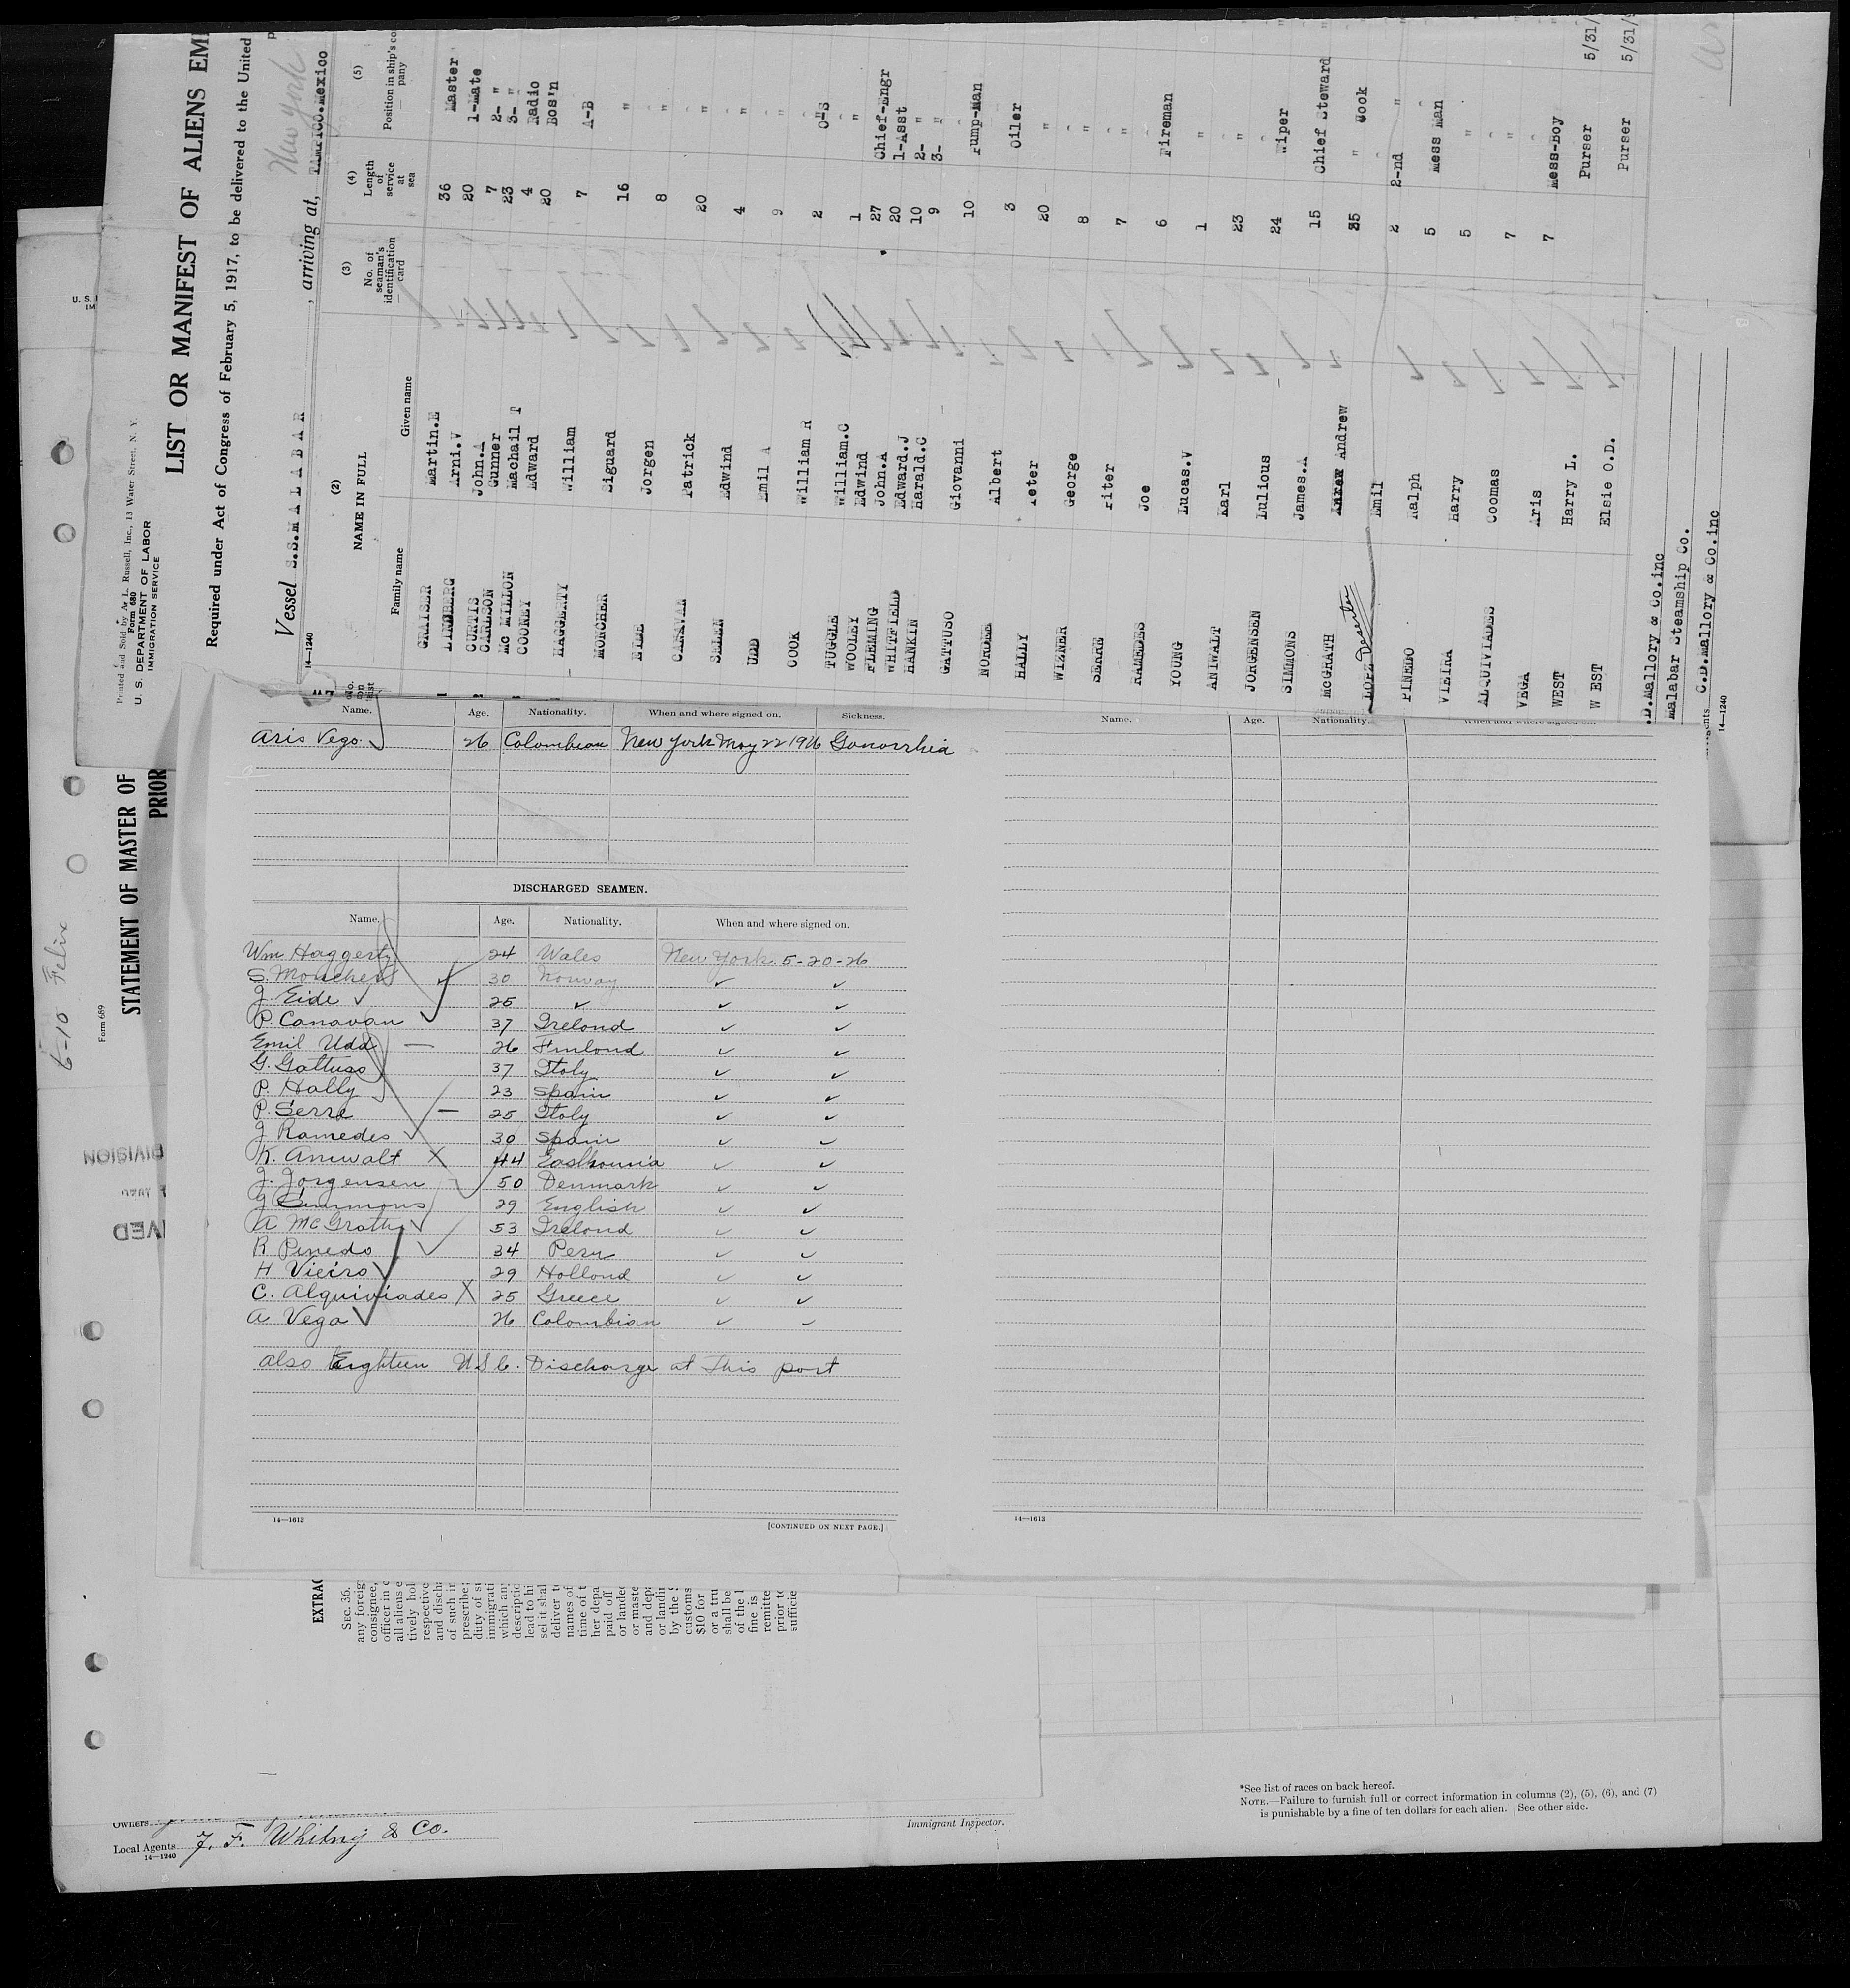 Printed and Sold by A. L. Russell, Inc., 13 Water Street, N. Y.
Form 680
U. S. DEPARTMENT OF LABOR
IMMIGRATION SERVICE
LIST OR MANIFEST OF ALIENS EM
Required under Act of Congress of February 5, 1917, to be delivered to the United
New York
Vessel S.S.MALABAR, arriving at, Tampico.Mexico
14—1240
(2) (3) (4) (5)
NAME IN FULL
Family name Given name
No. of seaman's identification card
Length of service at sea
Position in ship's company
GRAISER Martin.E 36 Master
LINDBERG Arni.V 20 1-Mate
CURTIS John.A 7 2- "
CARLSON Gunner 23 3- "
Mc MILLON Machail T 4 Radio
COONEY Edward 20 Bos'n
HAGGERTY William 7 A-B
MONCHER Siguard 16 "
EIDE Jorgen 8 "
CANAVAN Patrick 20 "
SELEN Edwind 4 "
UDD Emil A 9 "
COOK William R 2 O-S
TUGGLE William.C 1 "
WOOLEY Edwind 27 Chief-Engr
FLEMING John.A 20 1-Asst
WHITFIELD Edward.J 10 2- "
HANKIN Harald.C 9 3- "
GATTUSO Giovanni 10 Pump-Man
NORDEE Albert 3 Oiler
HALLY Peter 20 "
WIZNER George 8 "
SERRE Piter 7 "
RAMEDES Joe 6 Fireman
YOUNG Lucas.V 1 "
ANIWALT Karl 23 "
JORGENSEN Lulious 24 Wiper
SIMMONS James.A 15 Chief Steward
McGRATH Andrew 35 " Cook
LOPZ Deserter Emil 2 2-nd "
PINEDO Ralph 5 Mess Man
VIEIRA Harry 5 "
ALQUIVIADES Coomas 7 "
VEGA Aris 7 Mess-Boy
WEST Harry L. Purser 5/31/
W EST Elsie O.D. Purser 5/31/
.D.Mallory & Co.inc
Malabar Steamship Co.
C.D.Mallory & Co.inc
14—1240
Name. Age. Nationality. When and where signed on. Sickness.
Aris Vego 26 Colombian New York May 22 1926 Gonorrhia
DISCHARGED SEAMEN.
Name. Age. Nationality. When and where signed on.
Wm Haggerty 24 Wales New York. 5-20-26
S. Monchers 30 Norway
J. Eide 25
P. Canavan 37 Ireland
Emil Udd 26 Finland
G. Gattuso 37 Italy
P. Hally 23 Spain
P. Serre 25 Italy
J Ramedes 30 Spain
K. Aniwalt X 44 Easthounia
J. Jorgensen 50 Denmark
J Simmons 29 English
A McGrath 53 Ireland
R Pinedo 34 Peru
H Vieira 29 Holland
C. Alquiviades X 25 Greece
A Vega 26 Colombian
also Eighteen U S C. Discharge at This port
14—1613
[CONTINUED ON NEXT PAGE.]
Name. Age. Nationality. When and where signed on.
14—1613
6-10 Felix
Form 689
STATEMENT OF MASTER OF
PRIOR
DIVISION
VED
EXTRAC
SEC. 36.
any foreig
consignee,
officer in c
all aliens e
tively hol
respective
and disch
of such in
prescribe;
duty of su
immigrati
which am
descriptio
lead to hi
sel it shal
deliver t
names of
time of t
her depa
paid off
or lande
or maste
and depa
or landi
by the
customs
$10 for
or a tru
shall be
of the l
fine is
remitte
prior to
sufficie
Owners
Local Agents F. F. Whitny & Co.
14—1240
Immigrant Inspector.
*See list of races on back hereof.
NOTE.—Failure to furnish full or correct information in columns (2), (5), (6), and (7)
is punishable by a fine of ten dollars for each alien. See other side.